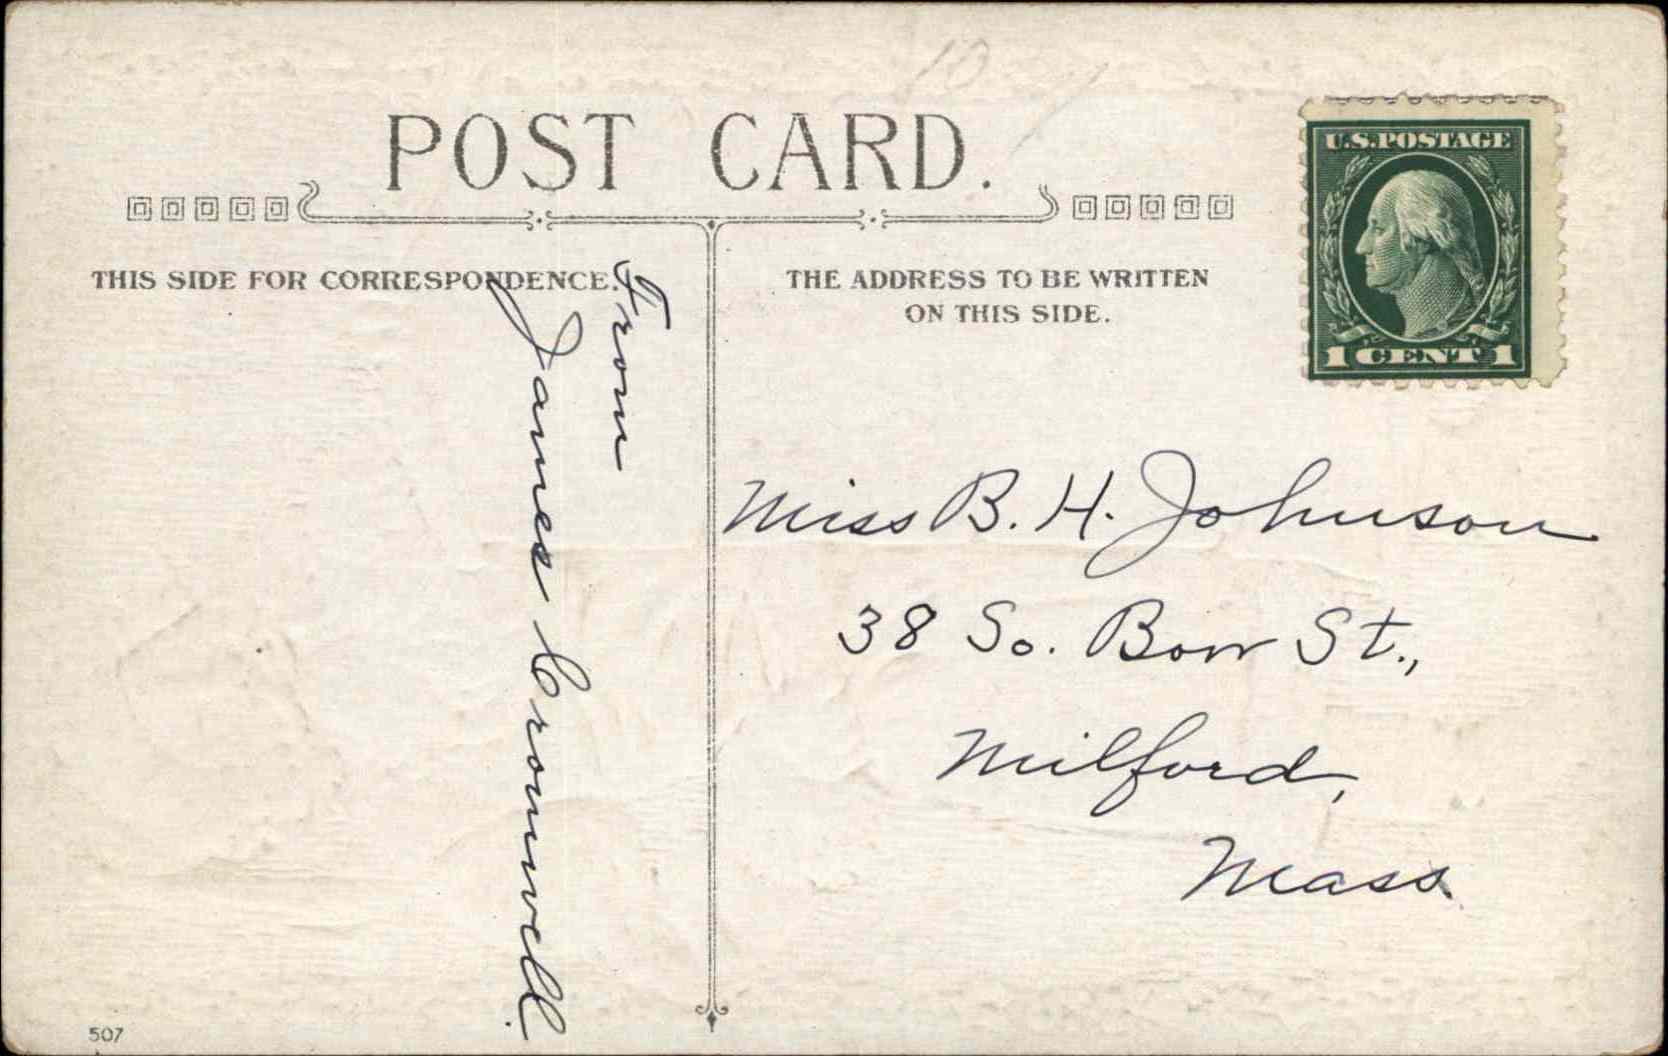 10
POST CARD.
THIS SIDE FOR CORRESPONDENCE.
THE ADDRESS TO BE WRITTEN
ON THIS SIDE.
U.S.POSTAGE
1 CENT 1
From
James Cromwell.
Miss B. H. Johnson
38 So. Bow St.,
Milford,
Mass.
507